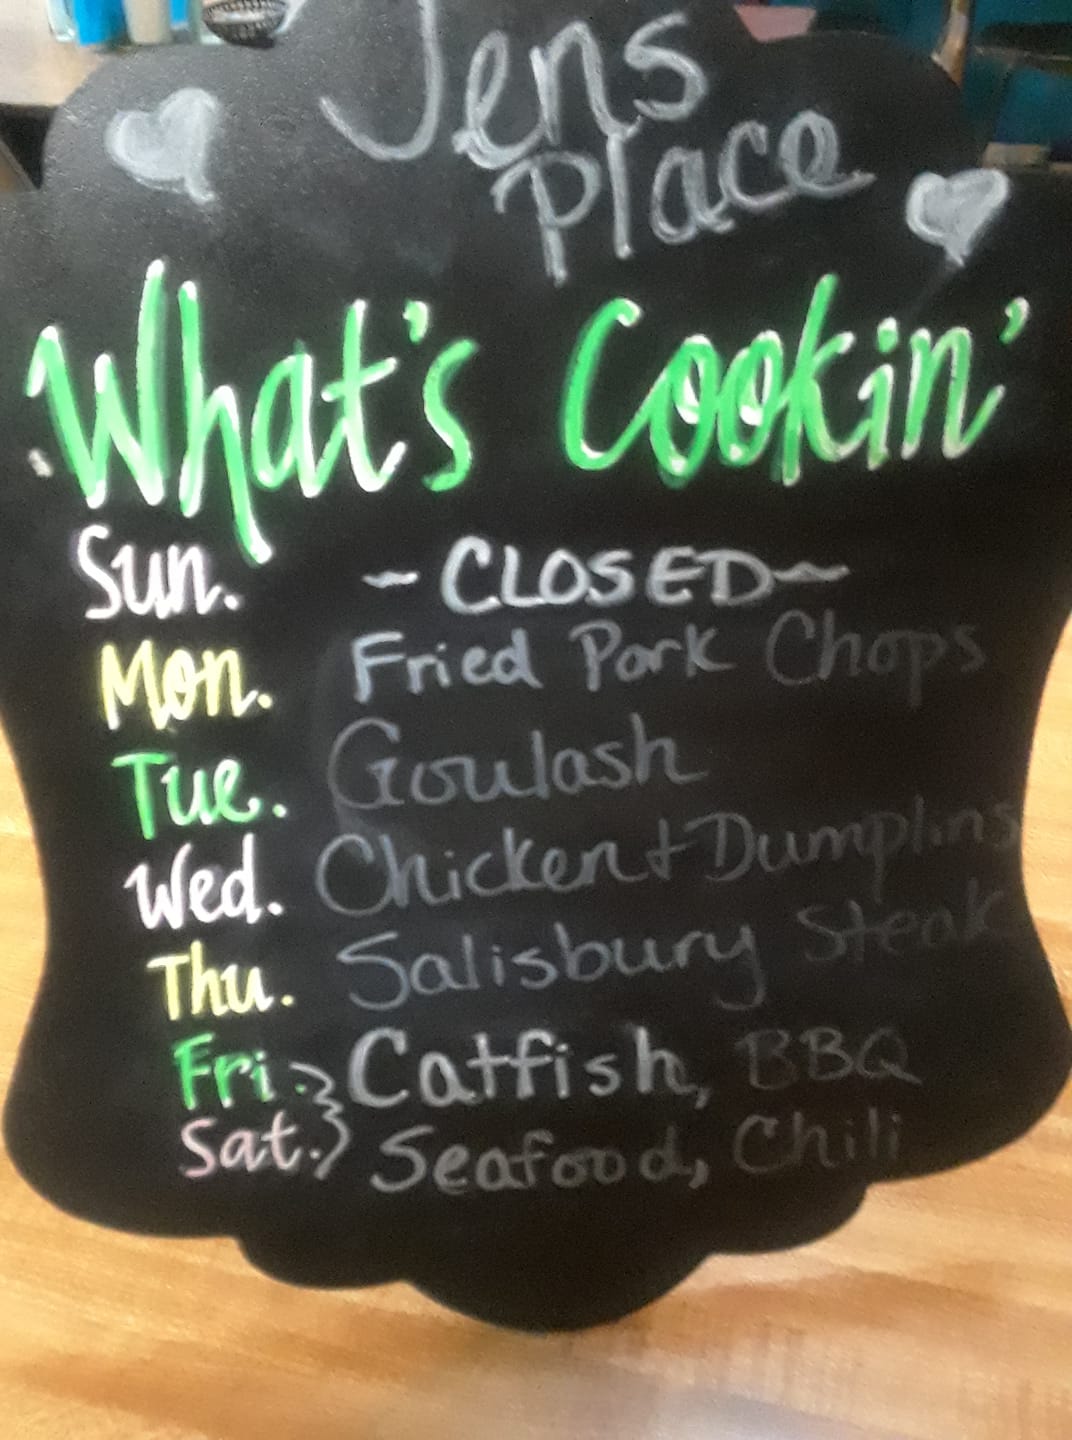 Jens
Place
What's Cookin'
Sun. ~CLOSED~
Mon. Fried Pork Chops
Tue. Goulash
Wed. Chicken + Dumplins
Thu. Salisbury Steak
Fri. } Catfish, BBQ
Sat. } Seafood, Chili